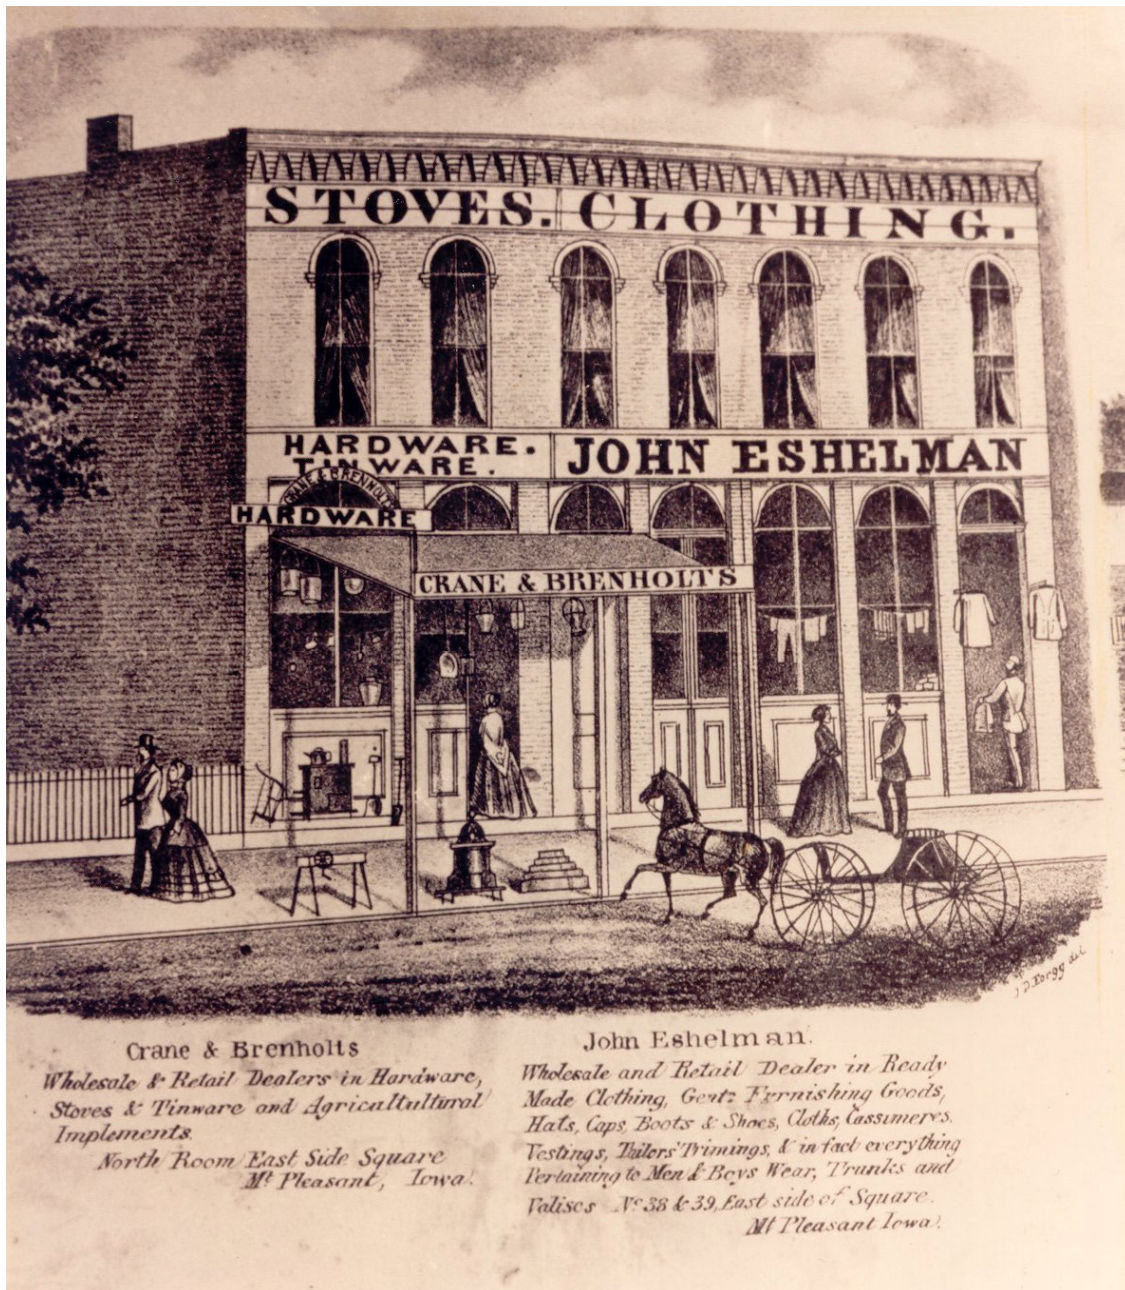 STOVES. CLOTHING.
HARDWARE. JOHN ESHELMAN
TINWARE.
CRANE & BRENHOLTS
HARDWARE
CRANE & BRENHOLTS
J D. Forgg del
Crane & Brenholts
Wholesale & Retail Dealers in Hardware,
Stoves & Tinware and Agricaltultural
Implements.
North Room East Side Square
Mt Pleasant, Iowa.
John Eshelman.
Wholesale and Retail Dealer in Ready
Made Clothing, Gents Fernishing Goods,
Hats, Caps, Boots & Shoes, Cloths, Cassimeres.
Vestings, Tailers' Trimings, & in fact everything
Pertaining to Men & Boys Wear, Trunks and
Valises No 38 & 39, East side of Square.
Mt Pleasant Iowa.